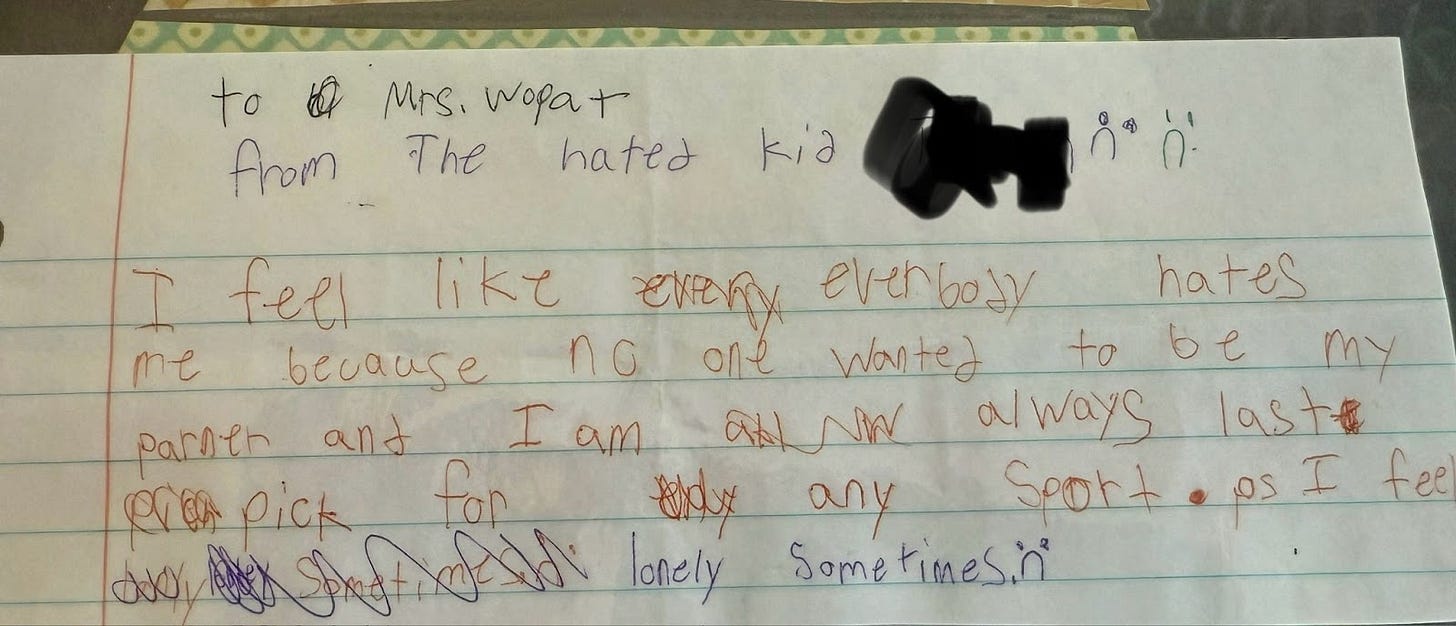 to Mrs. Wopat
from The hated kid
I feel like everbody hates
me because no one wanted to be my
parner and I am always last
pick for any Sport. ps I feel
lonely Sometimes.